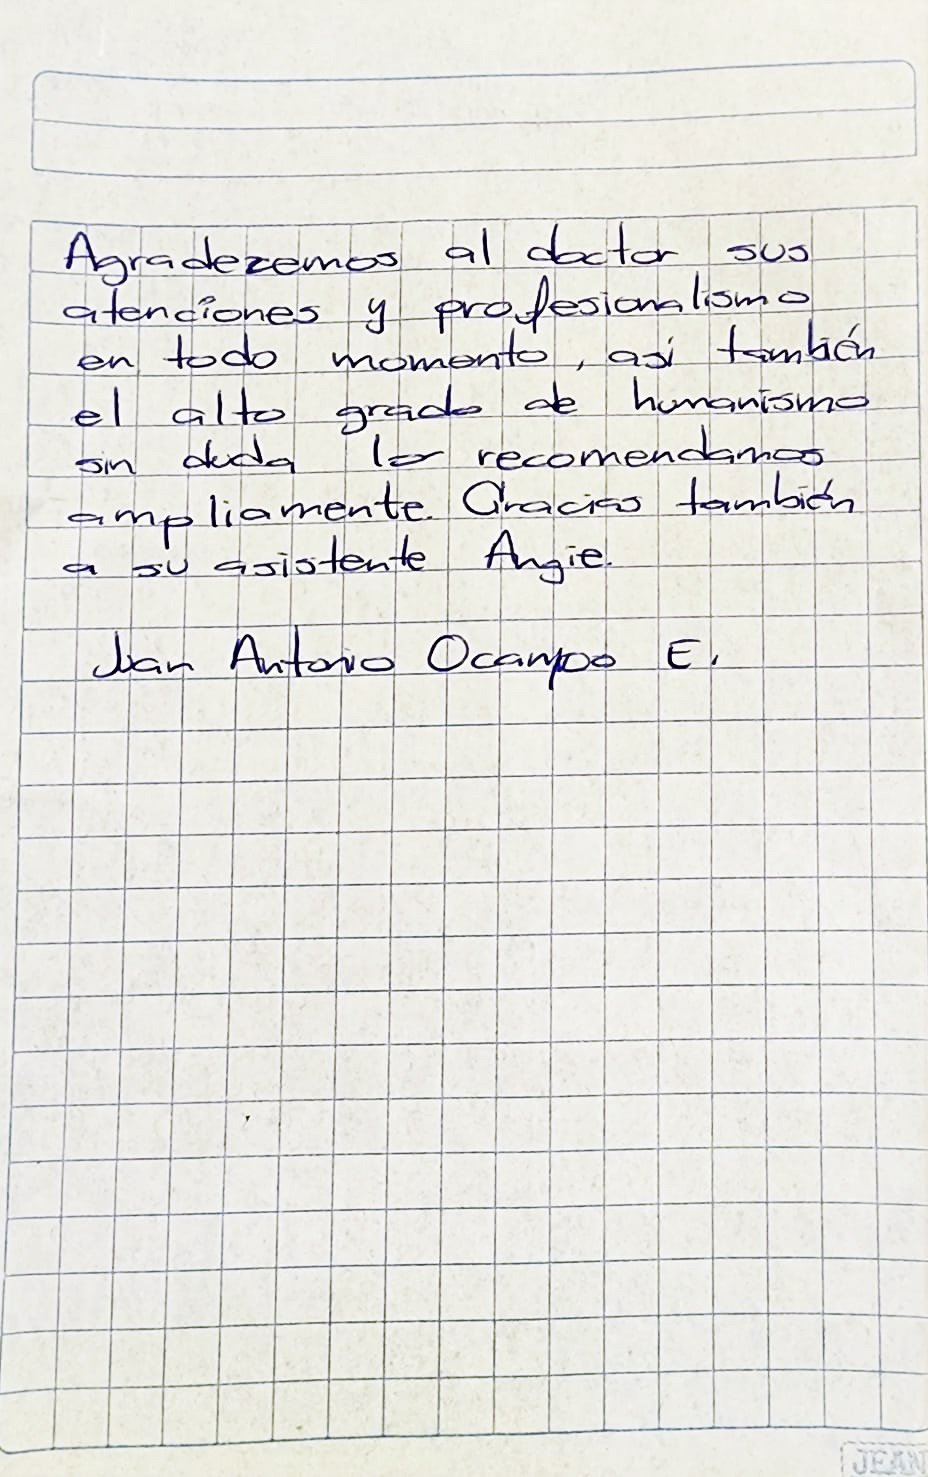 Agradezemos al doctor sus
atenciones y profesionalismo
en todo momento, así también
el alto grado de humanismo
sin duda lo recomendamos
ampliamente. Gracias también
a su asistente Angie.
Juan Antonio Ocampo E.
JEAN